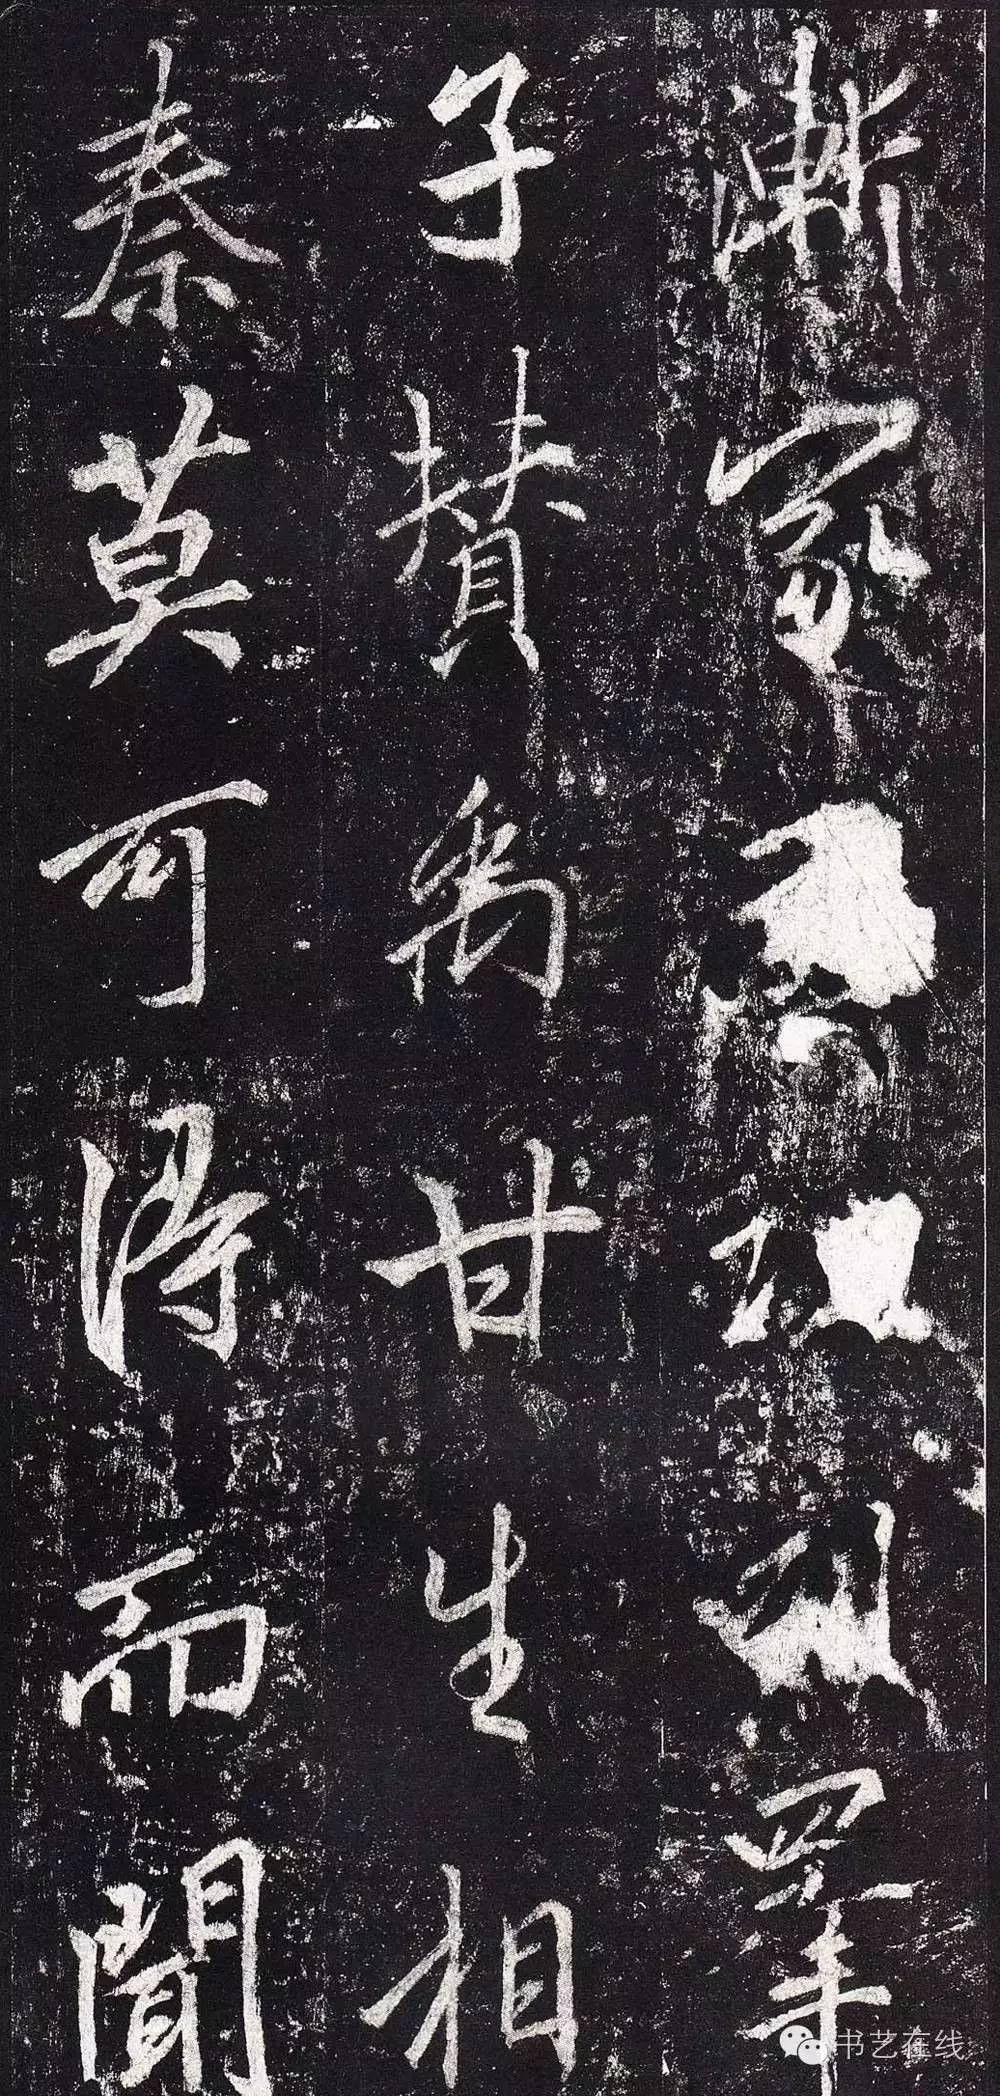 漸家
罕
子贊禹甘生相
秦莫可得而聞
书艺在线